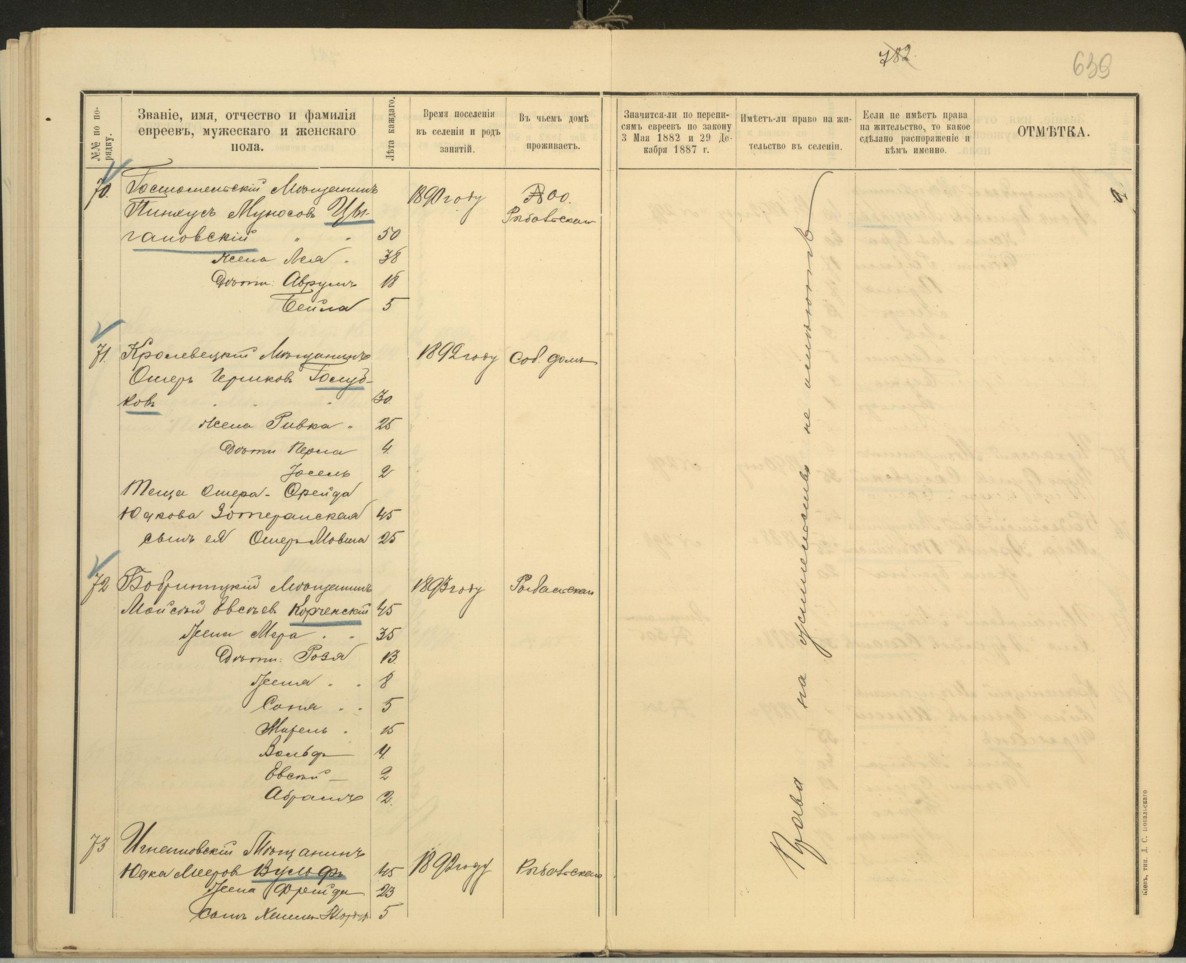 782
639
№№ по по-
рядку.
Званіе, имя, отчество и фамилія
евреевъ, мужескаго и женскаго
пола.
Лѣта каждаго.
Время поселенія
въ селеніи и родъ
занятій.
Въ чьемъ домѣ
проживаетъ.
Значится-ли по перепи-
симъ евреевъ по закону
3 Мая 1882 и 29 Де-
кабря 1887 г.
Имѣетъ-ли право на жи-
тельство въ селеніи.
Если не имѣетъ права
на жительство, то какое
сдѣлано распоряженіе и
кѣмъ именно.
ОТМѢТКА.
70. Мѣщанинъ 1890 году
Пинхусъ Цы-
гановскій 50
Жена Лея 38
Дѣти: Аврумъ 18
Бейла 5
71. Кролевецкій Мѣщанинъ 1892 году Соб. домъ
Ошеръ Голуб-
ковъ 30
Жена Ривка 25
Дѣти Перла 4
Іосель 2
Теща Ошера -
Юдкова 45
сынъ ея Ошеръ Мовша 25
72 Бобринецкій Мѣщанинъ 1893 году
Мойсей Евсѣевъ Корченскій 45
Жена Мера 35
Дѣти: Розя 13
8
Соня 5
15
Вольфъ 4
Евсей 2
Абрамъ 2
73 Игнатовскій Мѣщанинъ
Юдка Мееровъ Вульфъ 45 1892 году
Жена Фрейда 23
Сынъ 5
Права на жительство не имѣютъ